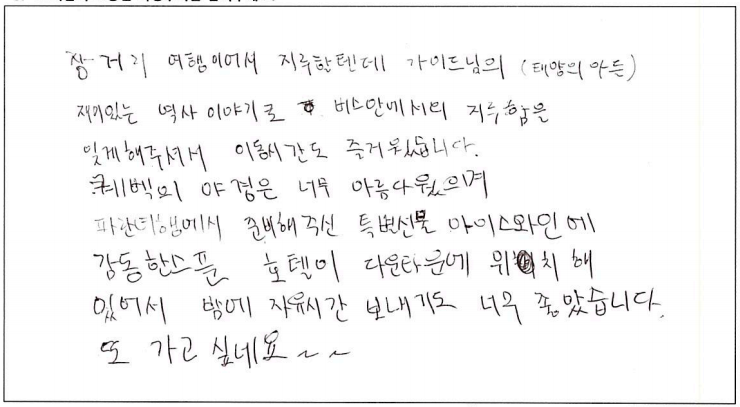 장거리 여행이어서 지루할텐데 가이드님의 (태양의 아든)
재미있는 역사 이야기로 버스안에서의 지루함을
잊게해주셔서 이동시간도 즐거웠습니다.
퀘벡의 야경은 너무 아름다웠으며
파란티행에서 준비해주신 특별선물 아이스와인에
감동한스푼 호텔이 다운타운에 위치해
있어서 밤에 자유시간 보내기도 너무 좋았습니다.
또 가고 싶네요~~